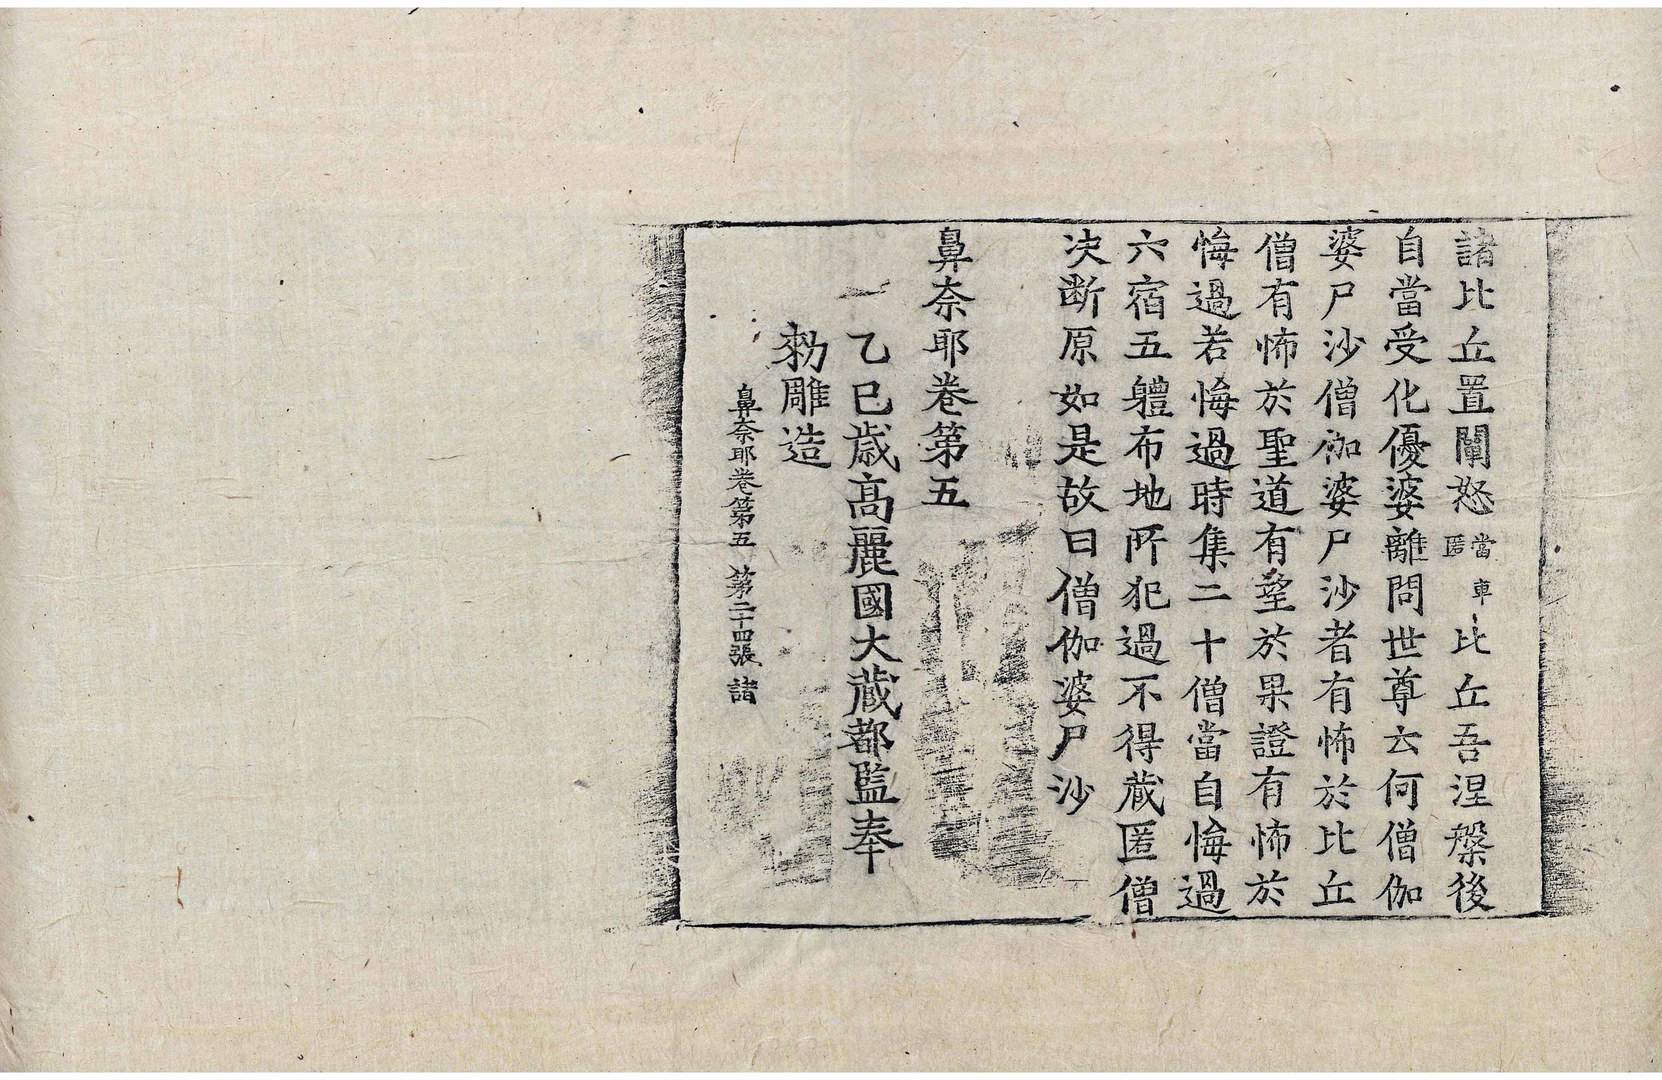 諸比丘置闡怒當車匿比丘吾涅槃後
自當受化優婆離問世尊云何僧伽
婆尸沙僧伽婆尸沙者有怖於比丘
僧有怖於聖道有望於果證有怖於
悔過若悔過時集二十僧當自悔過
六宿五軆布地所犯過不得蔵匿僧
決断原如是故曰僧伽婆尸沙
鼻奈耶卷第五
乙巳歳高麗國大蔵都監奉
勑雕造
鼻奈耶卷第五 第二十四張 諸